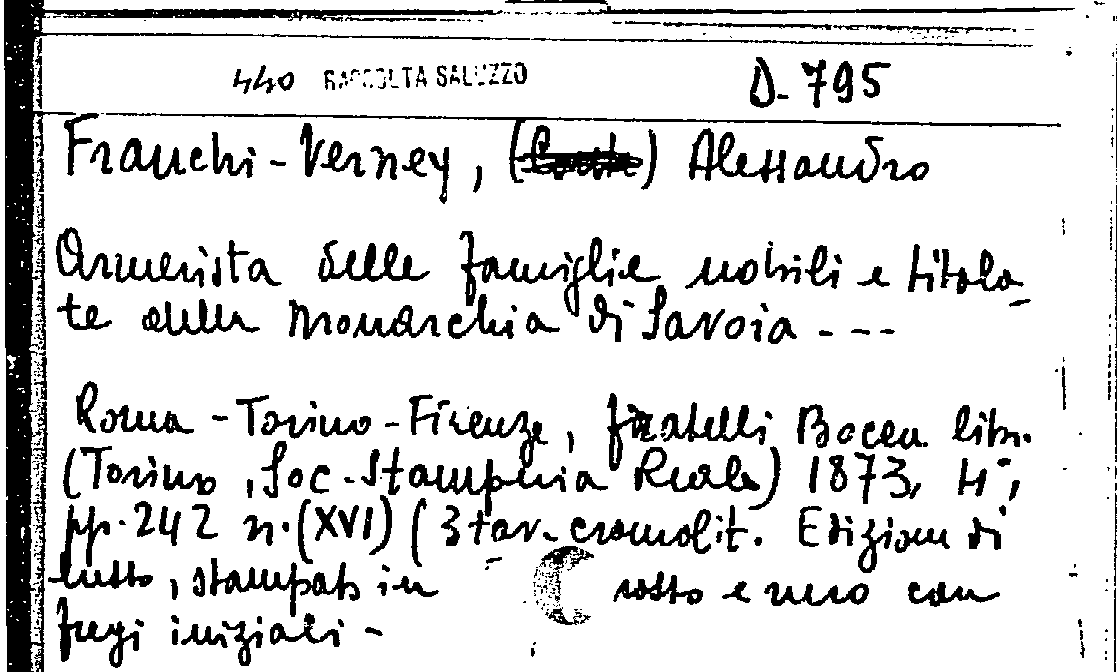 440 RACCOLTA SALUZZO D. 795
Franchi-Verney, (Conte) Alessandro
Armerista delle famiglie nobili e titola-
te della Monarchia di Savoia ---
Roma - Torino - Firenze, fratelli Bocca libr.
(Torino, Soc. Stamperia Reale) 1873, 4°,
pp. 242 n. (XVI) (3 tav. cromolit. Edizione di
lusso, stampata in rosso e nero con
fregi iniziali -